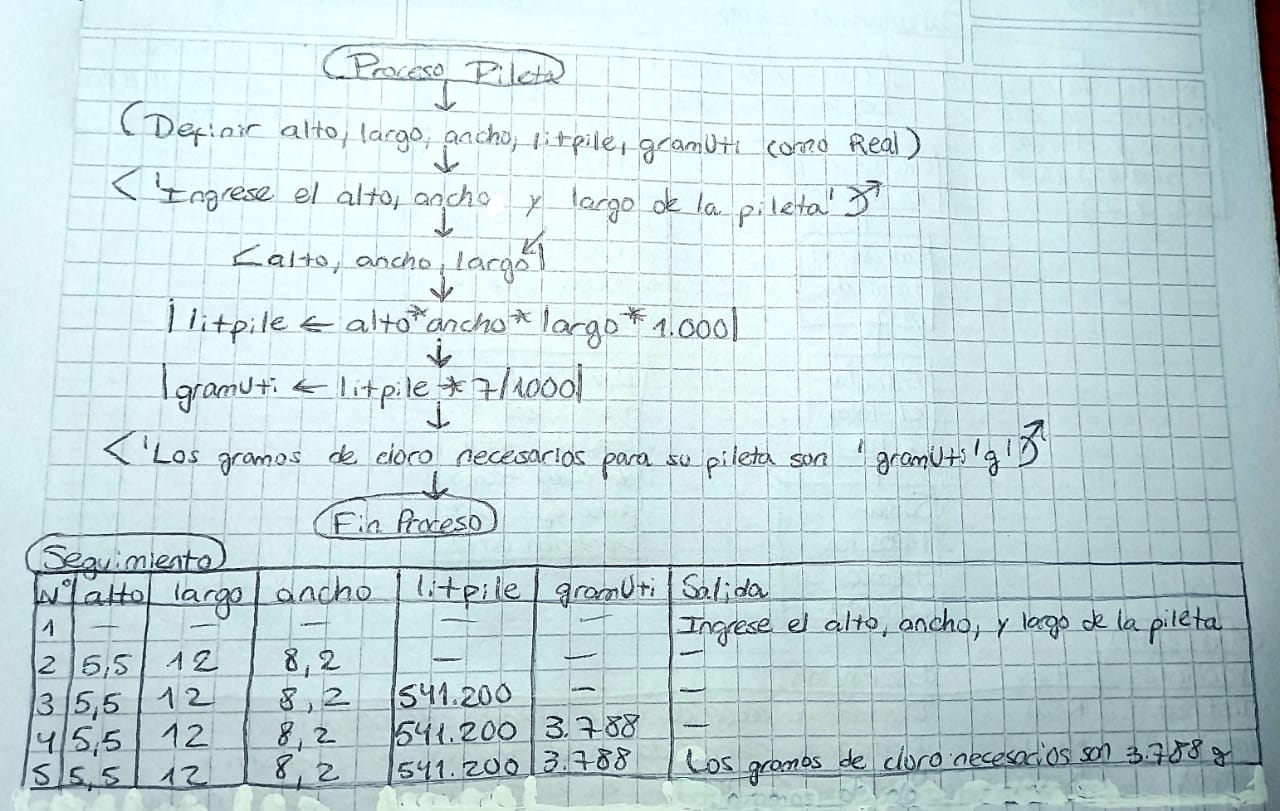 Proceso Pileta
(Definir alto, largo, ancho, litpile, gramUti como Real)
'Ingrese el alto, ancho y largo de la pileta'
alto, ancho, largo
litpile ← alto * ancho * largo * 1.000
gramUti ← litpile * 7/1000
'Los gramos de cloro necesarios para su pileta son ' gramUti 'g'
Fin Proceso
Seguimiento
N° alto largo ancho litpile gramUti Salida
1 — — — — — Ingrese el alto, ancho, y largo de la pileta
2 5,5 12 8,2 — — —
3 5,5 12 8,2 541.200 — —
4 5,5 12 8,2 541.200 3.788 —
5 5,5 12 8,2 541.200 3.788 Los gramos de cloro necesarios son 3.788 g